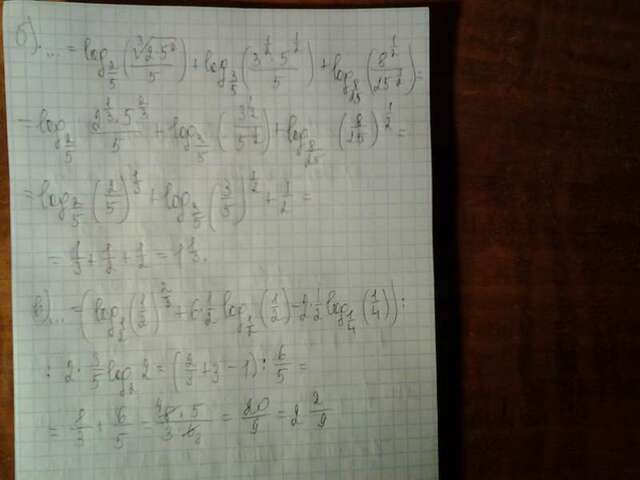 б)... = log_{2/5} (∛(2·5²)/5) + log_{3/5} (3^{1/2}·5^{1/2}/5) + log_{8/25} (8^{1/2}/25^{1/2}) =
= log_{2/5} 2^{1/3}·5^{2/3}/5 + log_{3/5} (3^{1/2}/5^{1/2}) + log_{8/25} (8/25)^{1/2} =
= log_{2/5} (2/5)^{1/3} + log_{3/5} (3/5)^{1/2} + 1/2 =
= 1/3 + 1/2 + 1/2 = 1 1/3.
в)... = (log_{1/2} (1/2)^{2/3} + 6·1/2 log_{1/2} (1/2) - 2·1/2 log_{1/4} (1/4)) :
: 2·3/5 log_2 2 = (2/3 + 3 - 1) : 6/5 =
= 8/3 : 6/5 = 8·5/3·6 = 20/9 = 2 2/9